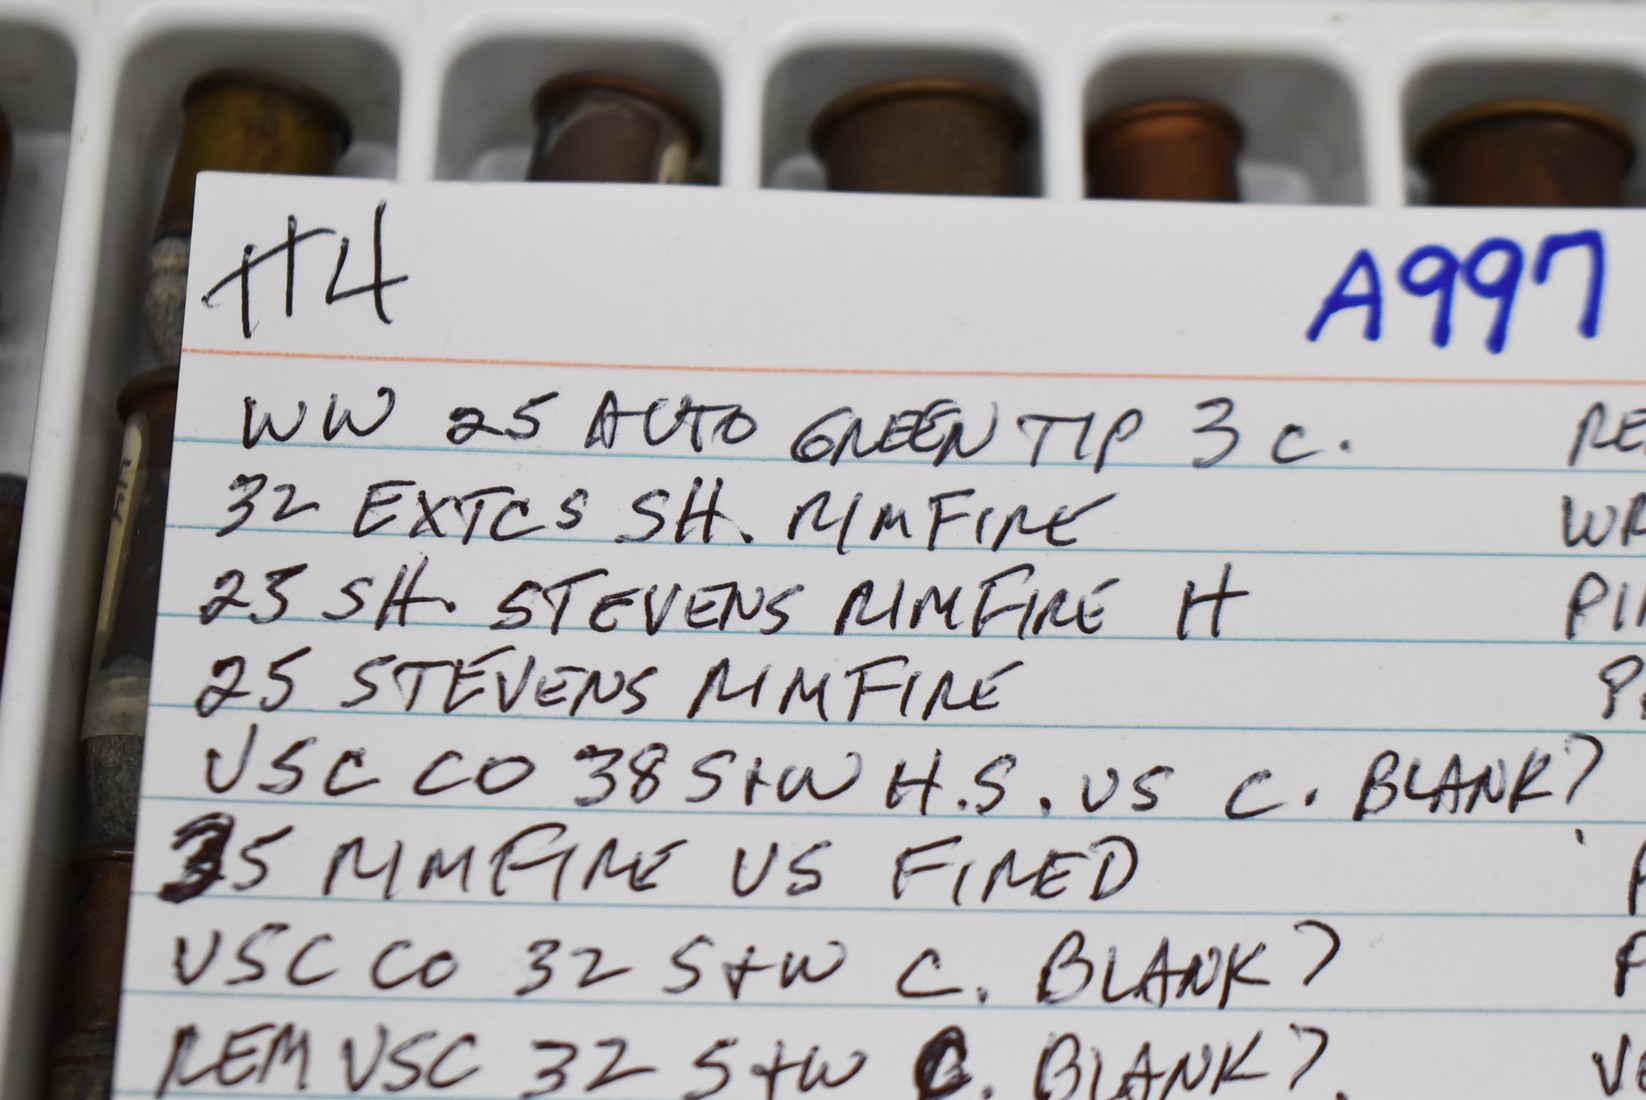 H4 A997
WW 25 AUTO GREEN TIP 3 C. RE
32 EXTCS SH. RIMFIRE WR
25 SH. STEVENS RIMFIRE H PIN
25 STEVENS RIMFIRE
USC CO 38 S+W H.S. US C. BLANK?
35 RIMFIRE US FIRED
USC CO 32 S+W C. BLANK?
REM USC 32 S+W C. BLANK?.